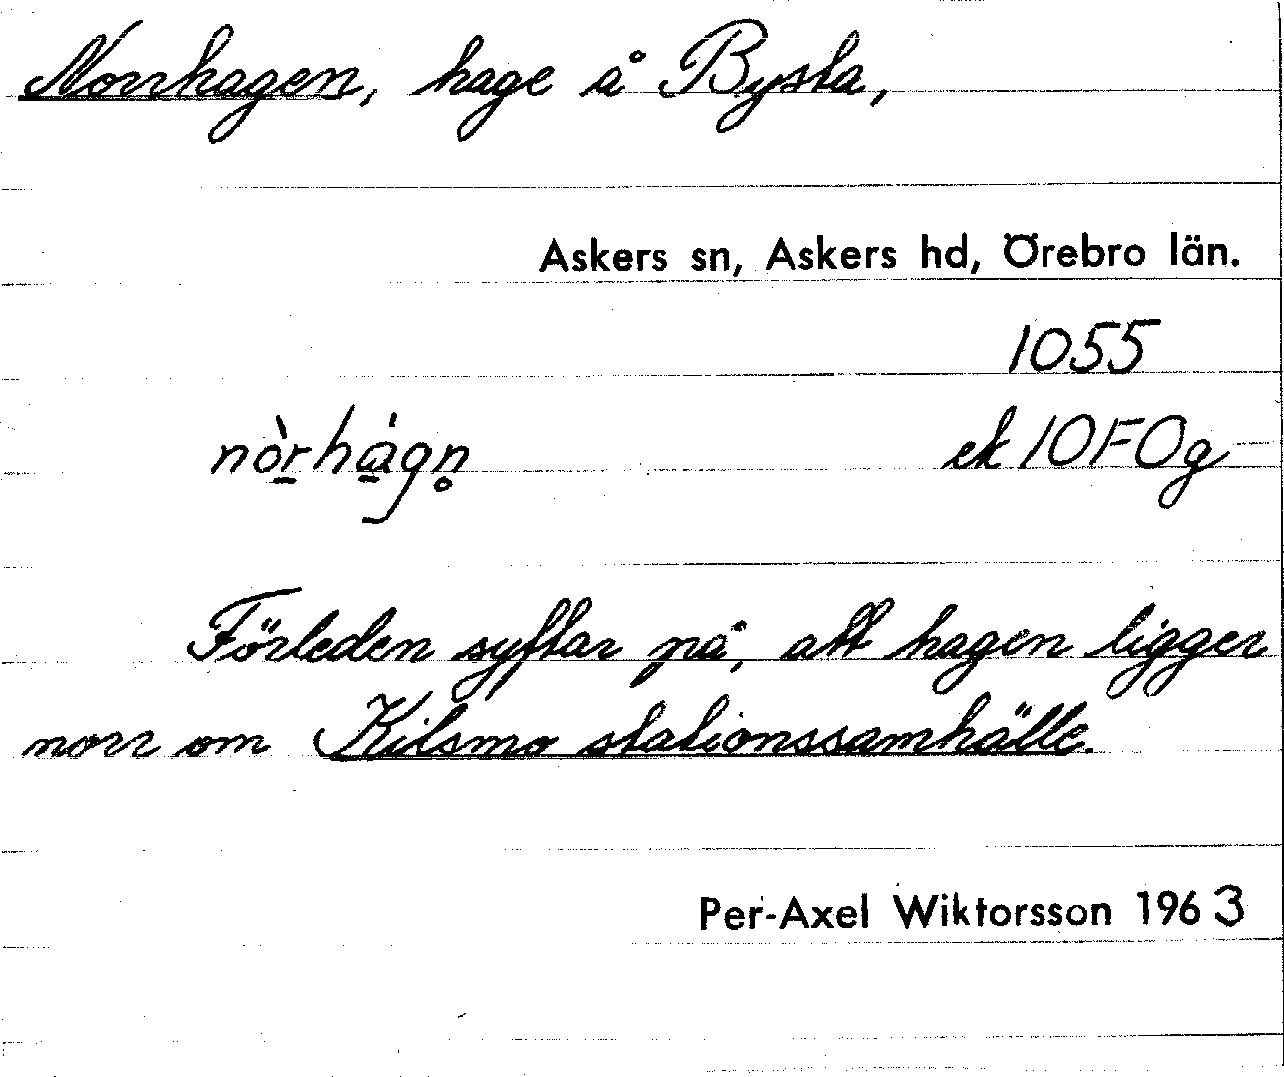 Norrhagen, hage å Bysta,
Askers sn, Askers hd, Örebro län.
1055
nòr̠há̠gn̥ ek 10F0g
Förleden syftar på, att hagen ligger
norr om Kilsmo stationssamhälle.
Per-Axel Wiktorsson 1963